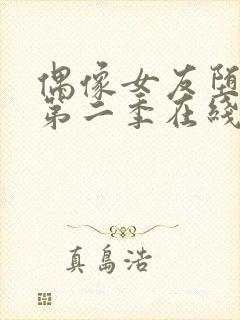 偶像女友堕
第二季在线
真島浩